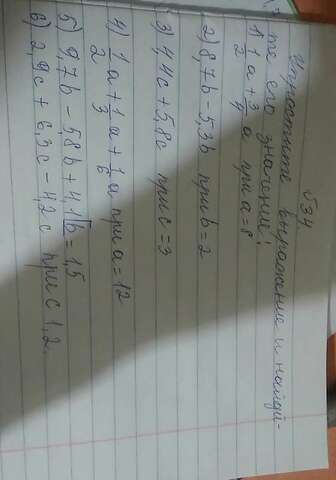 √34
Упростите выражение и найди-
те его значение!
1) 1/2 a + 3/4 a при a = 8
2) 8,7b - 5,3b при b = 2
3) 4,4c + 5,8c при c = 3
4) 1/2 a + 1/3 a + 1/6 a при a = 12
5) 9,7b - 5,8b + 4,1b = 1,5
6) 2,9c + 6,3c - 4,2c при c 1,2.